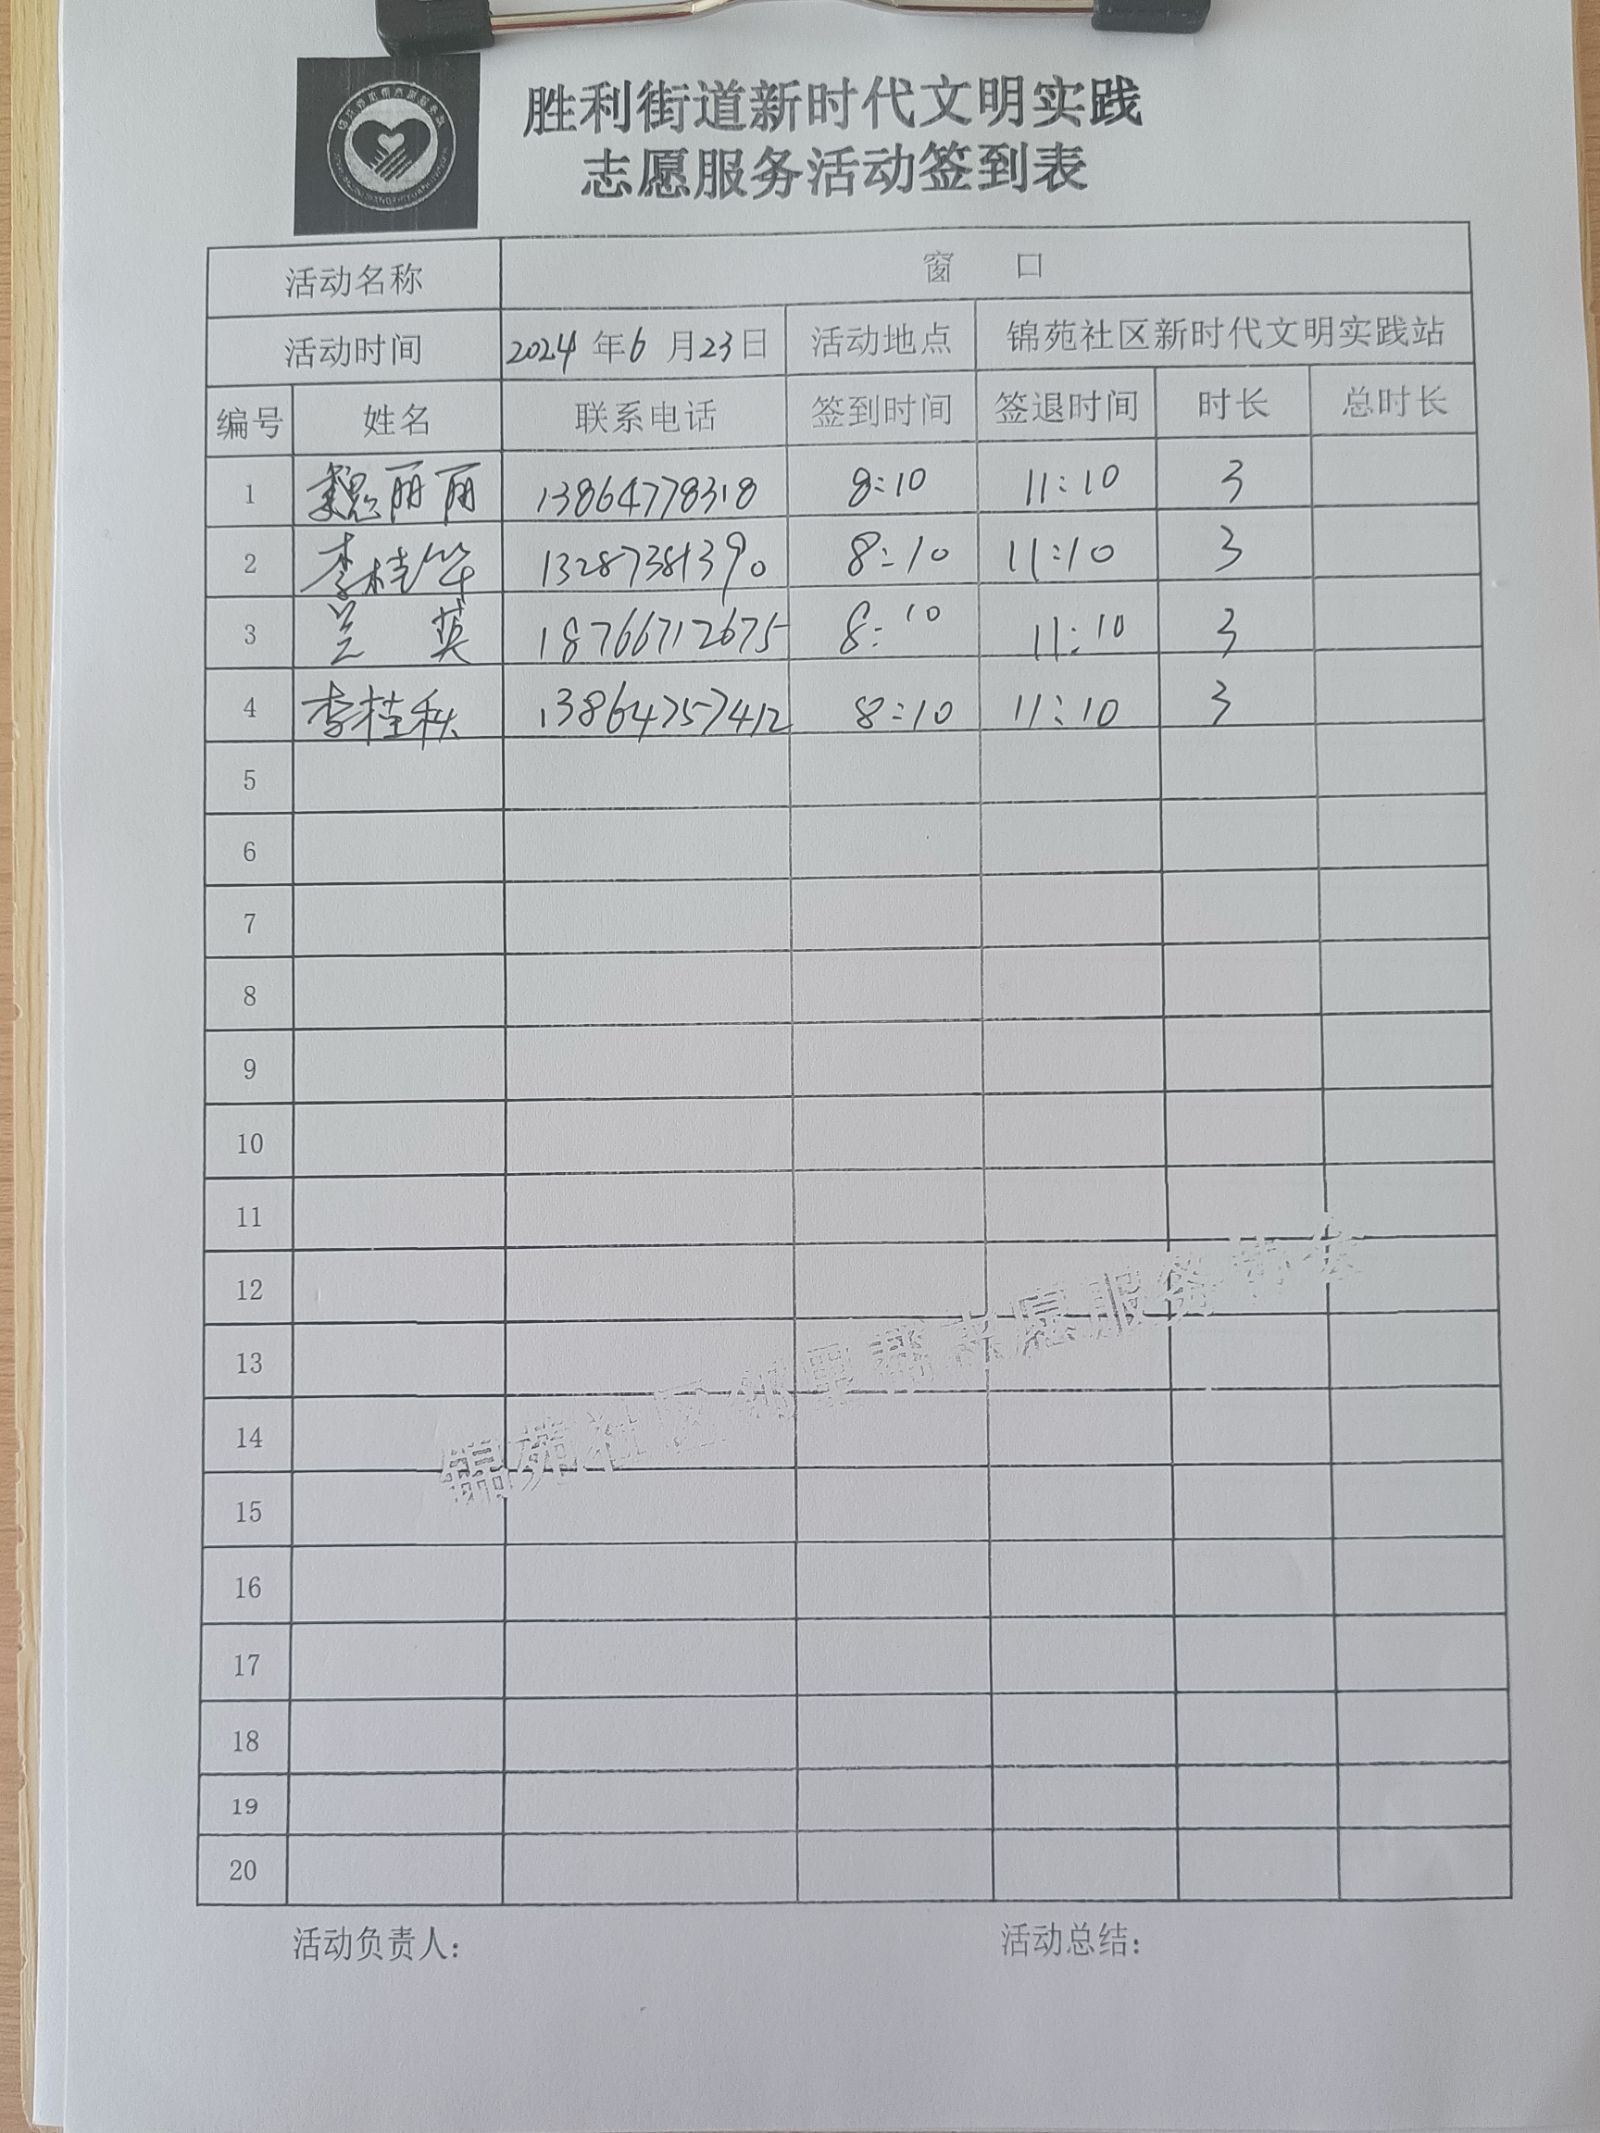 胜利街道新时代文明实践
志愿服务活动签到表
活动名称 窗 口
活动时间 2024 年 6 月 23 日 活动地点 锦苑社区新时代文明实践站
编号 姓名 联系电话 签到时间 签退时间 时长 总时长
1 魏丽丽 13864778318 8:10 11:10 3
2 李桂华 13287381390 8:10 11:10 3
3 兰 英 18766712675 8:10 11:10 3
4 李桂秋 13864757412 8:10 11:10 3
5
6
7
8
9
10
11
12
13
14
15
16
17
18
19
20
锦苑社区邻里帮志愿服务协会
活动负责人: 活动总结: